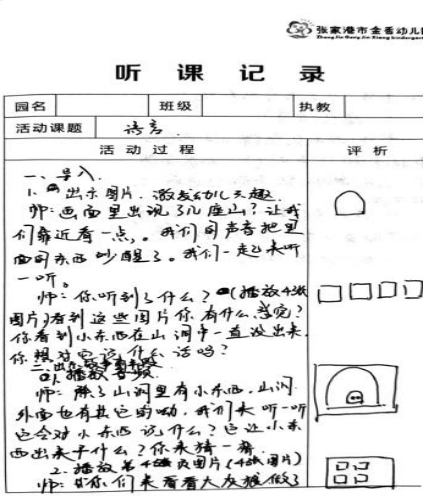 张家港市金香幼儿园
听课记录
园名 班级 执教
活动课题 语言
活动过程 评析
一、导入.
1. 出示图片.激发幼儿兴趣.
师:画面里出现了几座山?让我
们靠近看一点,。我们用声音把里
面的东西吵醒了。我们一起来听
一听。
师:你听到了什么?(播放4张
图片)看到这些图片你有什么感觉?
你看到小东西在山洞中一直没出来
你想对它说什么话吗?
二、出示
播放
师:除了山洞里有小东西.山洞
外面也有其它动物,我们来听一听
它会对小东西说什么?它让小东
西出来干什么?你来猜一猜
2.播放 图片(4张图片)
师: 你们来看看大灰 做了